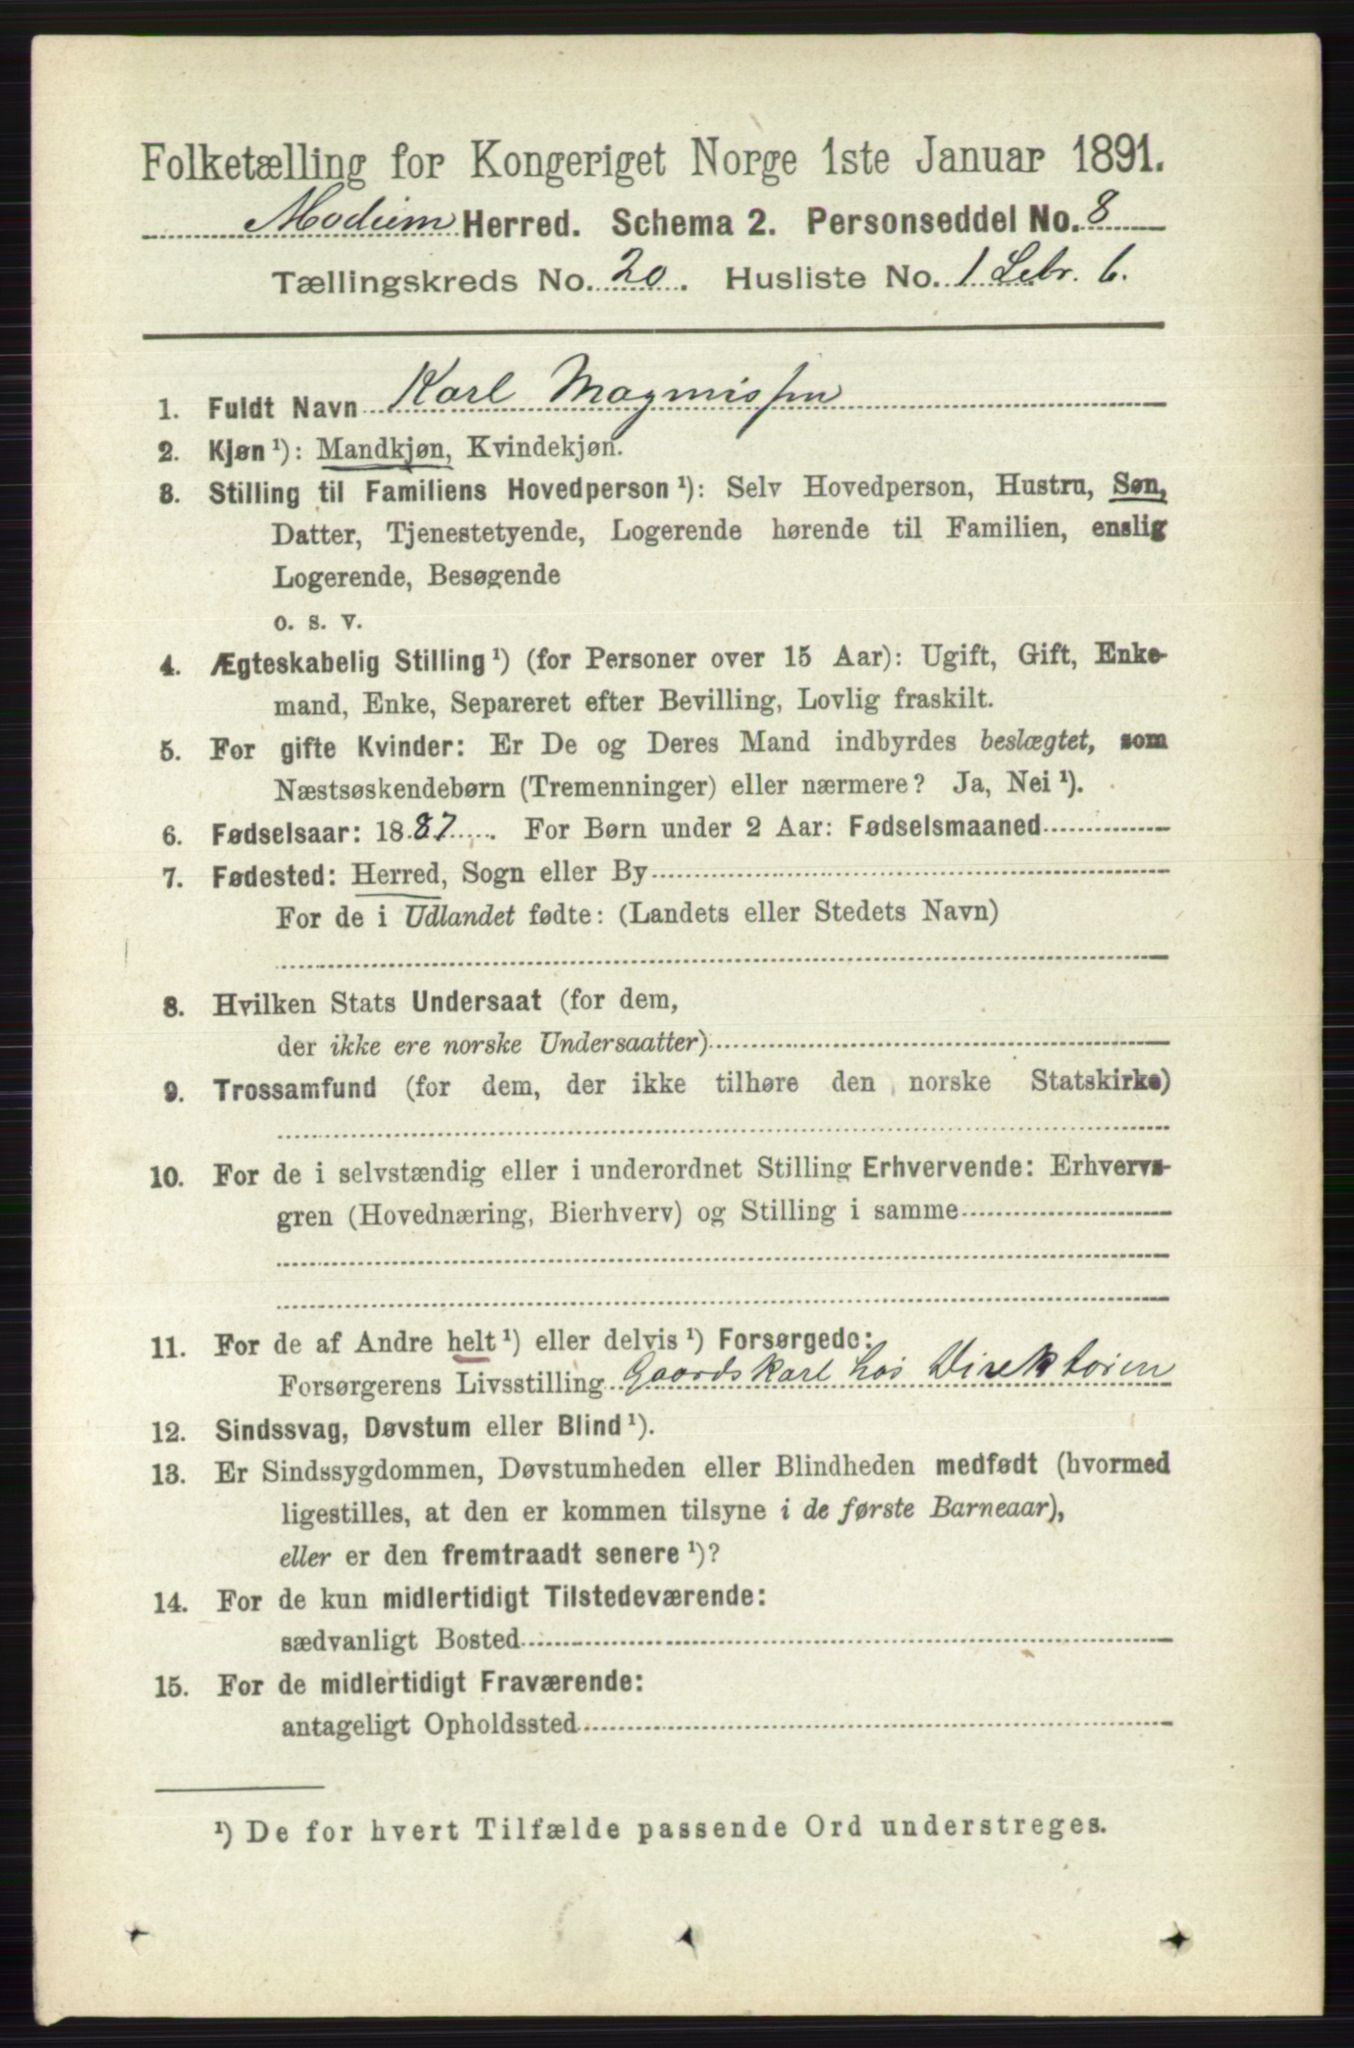 Folketælling for Kongeriget Norge 1ste Januar 1891.
Modum Herred. Schema 2. Personseddel No. 8
Tællingskreds No. 20. Husliste No. 1 Lebr. 6.
1. Fuldt Navn Karl Magnussen
2. Kjøn ¹): Mandkjøn, Kvindekjøn.
3. Stilling til Familiens Hovedperson ¹): Selv Hovedperson, Hustru, Søn,
Datter, Tjenestetyende, Logerende hørende til Familien, enslig
Logerende, Besøgende
o. s. v.
4. Ægteskabelig Stilling ¹) (for Personer over 15 Aar): Ugift, Gift, Enke-
mand, Enke, Separeret efter Bevilling, Lovlig fraskilt.
5. For gifte Kvinder: Er De og Deres Mand indbyrdes beslægtet, som
Næstsøskendebørn (Tremenninger) eller nærmere? Ja, Nei ¹).
6. Fødselsaar: 1887. For Børn under 2 Aar: Fødselsmaaned
7. Fødested: Herred, Sogn eller By
For de i Udlandet fødte: (Landets eller Stedets Navn)
8. Hvilken Stats Undersaat (for dem,
der ikke ere norske Undersaatter)
9. Trossamfund (for dem, der ikke tilhøre den norske Statskirke)
10. For de i selvstændig eller i underordnet Stilling Erhvervende: Erhvervs-
gren (Hovednæring, Bierhverv) og Stilling i samme
11. For de af Andre helt ¹) eller delvis ¹) Forsørgede:
Forsørgerens Livsstilling Gaardskarl hos Direktøren
12. Sindssvag, Døvstum eller Blind ¹).
13. Er Sindssygdommen, Døvstumheden eller Blindheden medfødt (hvormed
ligestilles, at den er kommen tilsyne i de første Barneaar),
eller er den fremtraadt senere ¹)?
14. For de kun midlertidigt Tilstedeværende:
sædvanligt Bosted
15. For de midlertidigt Fraværende:
antageligt Opholdssted
¹) De for hvert Tilfælde passende Ord understreges.